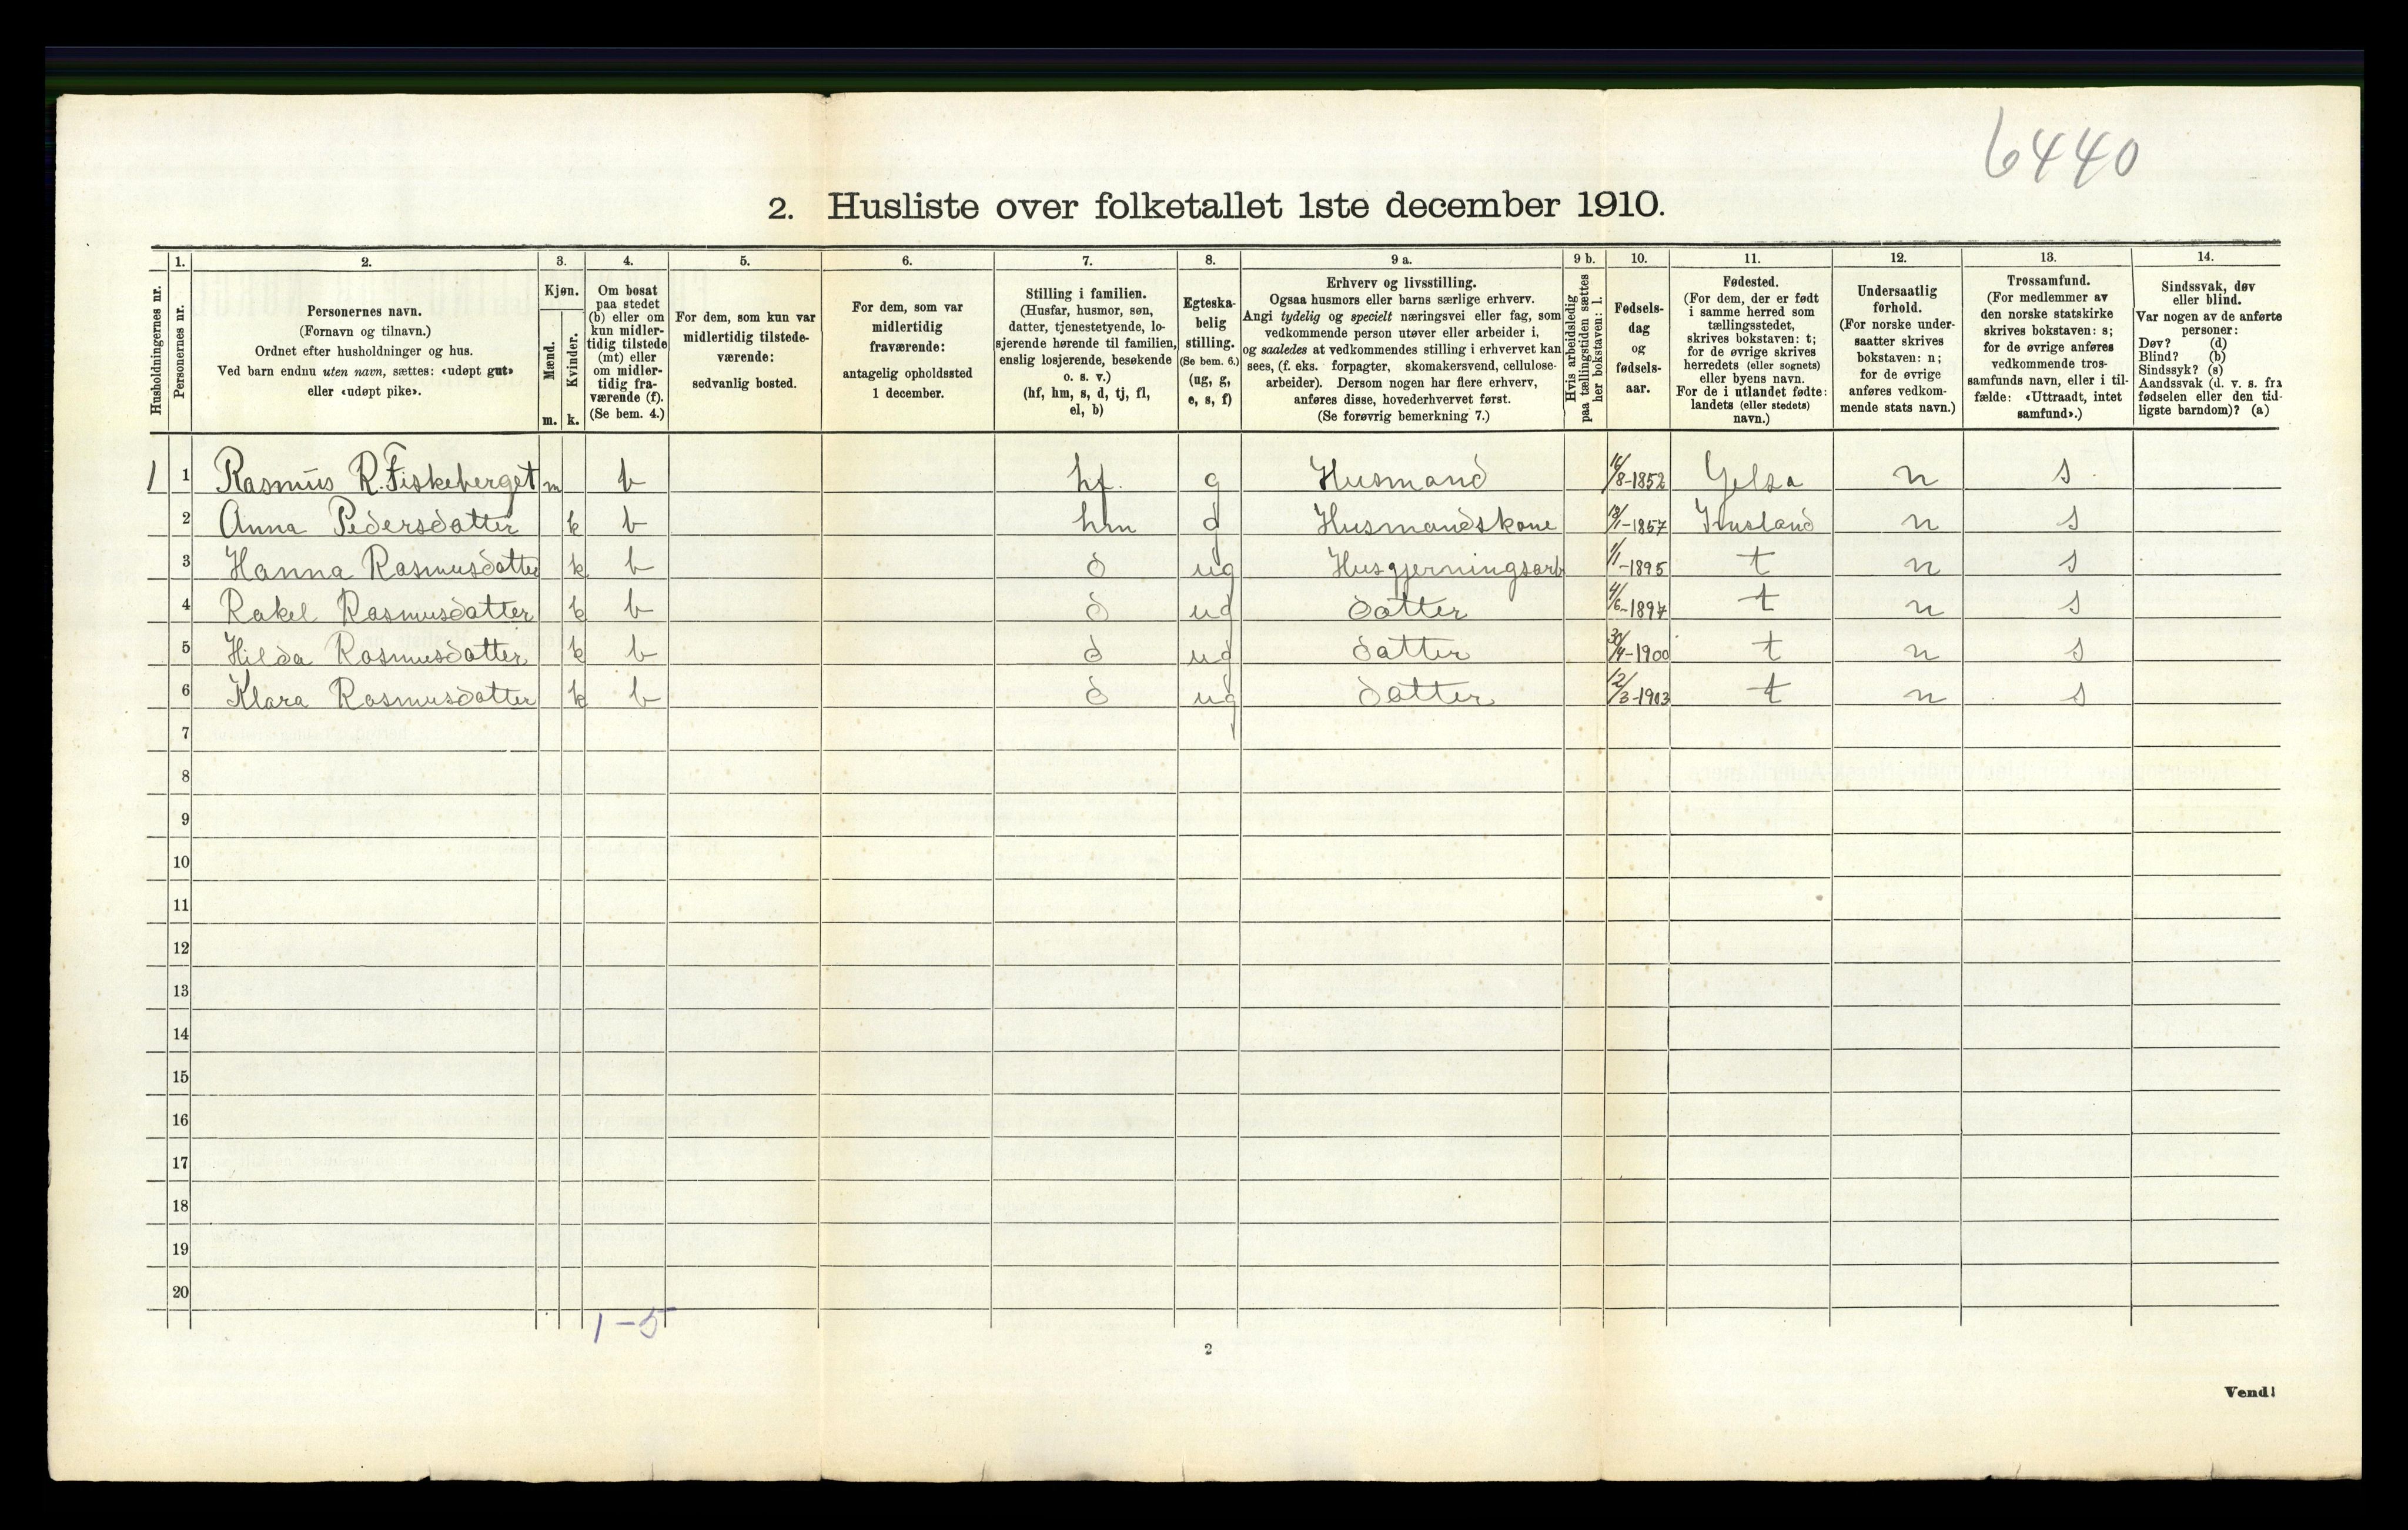 6440
2. Husliste over folketallet 1ste december 1910.
Husholdningernes nr.
1.
Personernes nr.
2.
Personernes navn.
(Fornavn og tilnavn.)
Ordnet efter husholdninger og hus.
Ved barn endnu uten navn, sættes: «udøpt gut»
eller «udøpt pike».
3.
Kjøn.
Mænd.
Kvinder.
m. k.
4.
Om bosat
paa stedet
(b) eller om
kun midler-
tidig tilstede
(mt) eller
om midler-
tidig fra-
værende (f).
(Se bem. 4.)
5.
For dem, som kun var
midlertidig tilstede-
værende:
sedvanlig bosted.
6.
For dem, som var
midlertidig
fraværende:
antagelig opholdssted
1 december.
7.
Stilling i familien.
(Husfar, husmor, søn,
datter, tjenestetyende, lo-
sjerende hørende til familien,
enslig losjerende, besøkende
o. s. v.)
(hf, hm, s, d, tj, fl,
el, b)
8.
Egteska-
belig
stilling.
(Se bem. 6.)
(ug, g,
e, s, f)
9 a.
Erhverv og livsstilling.
Ogsaa husmors eller barns særlige erhverv.
Angi tydelig og specielt næringsvei eller fag, som
vedkommende person utøver eller arbeider i,
og saaledes at vedkommendes stilling i erhvervet kan
sees, (f. eks. forpagter, skomakersvend, cellulose-
arbeider). Dersom nogen har flere erhverv,
anføres disse, hovederhvervet først.
(Se forøvrig bemerkning 7.)
9 b.
Hvis arbeidsledig
paa tællingstiden sættes
her bokstaven: l.
10.
Fødsels-
dag
og
fødsels-
aar.
11.
Fødested.
(For dem, der er født
i samme herred som
tællingsstedet,
skrives bokstaven: t;
for de øvrige skrives
herredets (eller sognets)
eller byens navn.
For de i utlandet fødte:
landets (eller stedets)
navn.)
12.
Undersaatlig
forhold.
(For norske under-
saatter skrives
bokstaven: n;
for de øvrige
anføres vedkom-
mende stats navn.)
13.
Trossamfund.
(For medlemmer av
den norske statskirke
skrives bokstaven: s;
for de øvrige anføres
vedkommende tros-
samfunds navn, eller i til-
fælde: «Uttraadt, intet
samfund».)
14.
Sindssvak, døv
eller blind.
Var nogen av de anførte
personer:
Døv? (d)
Blind? (b)
Sindssyk? (s)
Aandssvak (d. v. s. fra
fødselen eller den tid-
ligste barndom)? (a)
1 1 Rasmus R. Fiskeberget m b hf. g Husmand 16/8-1852 Gelsa n s
2 Anna Pedersdatter k b hm g Husmandskone -1857 Imsland n s
3 Hanna Rasmusdatter k b d ug Husgjerningsarb 1/1-1895 t n s
4 Rakel Rasmusdatter k b d ug datter 4/6-1897 t n s
5 Hilda Rasmusdatter k b d ug datter 30/4-1900 t n s
6 Klara Rasmusdatter k b d ug datter 12/3-1903 t n s
7
8
9
10
11
12
13
14
15
16
17
18
19
20
1-5
2
Vend!